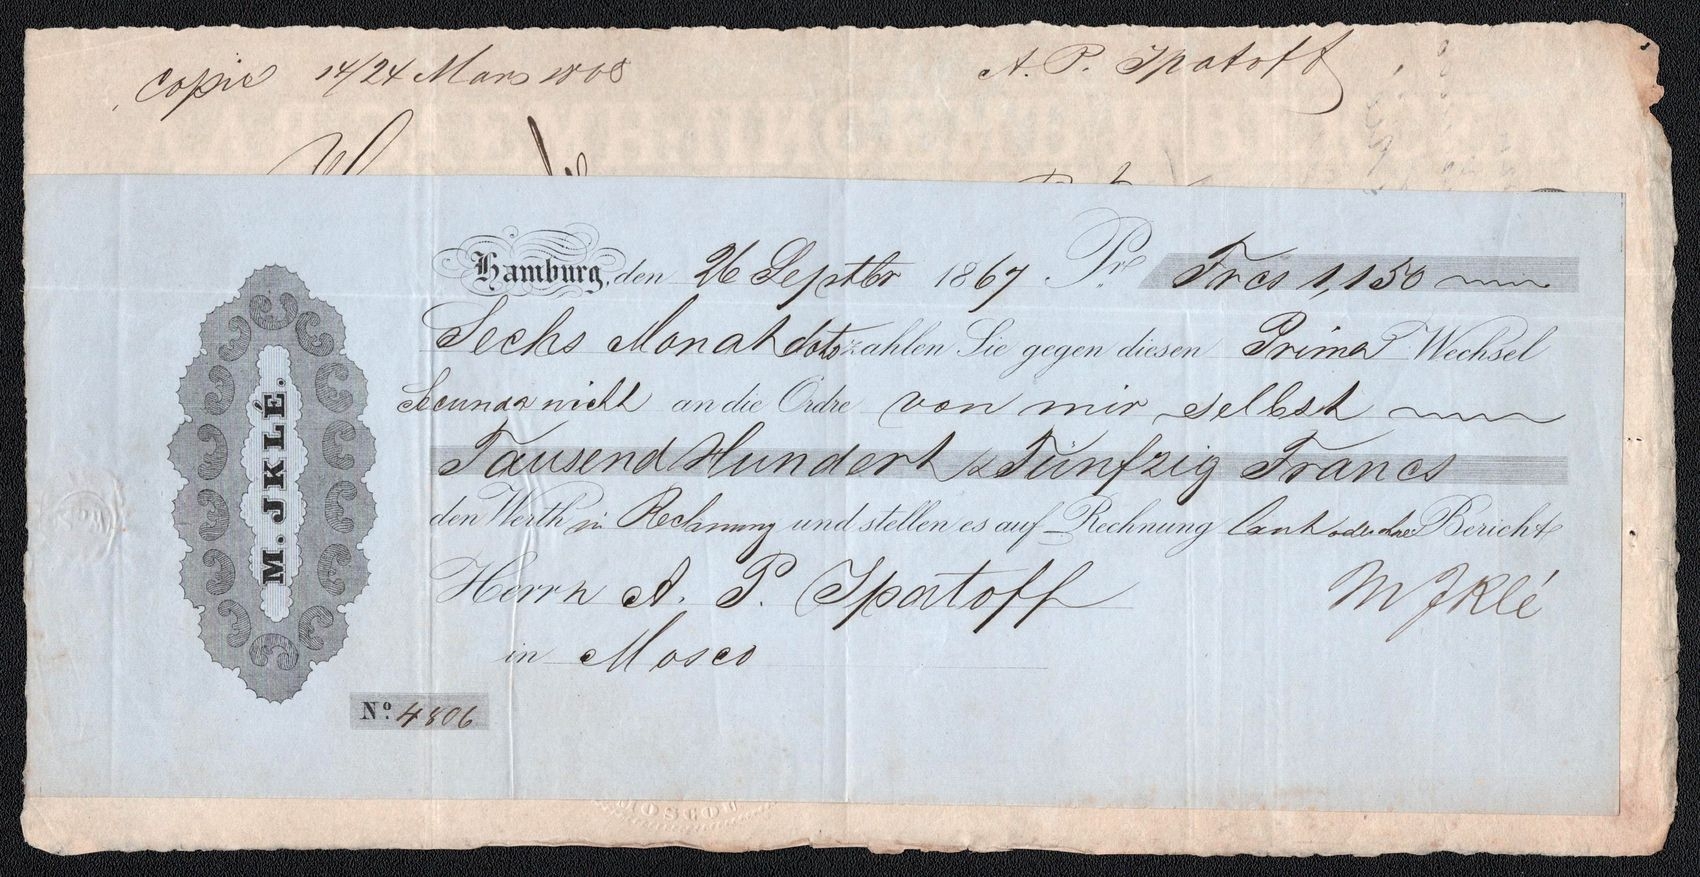 Copie 14/24 Mars 1868
A. P. Ipatoff
Hamburg, den 26 Septbr 1867. Pr. Frcs 1,150
Sechs Monat dato zahlen Sie gegen diesen Prima Wechsel
Secunda nicht an die Ordre von mir selbst
Tausend Hundert & Fünfzig Francs
den Werth in Rechnung und stellen es auf Rechnung laut oder ohne Bericht
Herrn A. P. Ipatoff
M Jklé
in Mosco
No. 4806
M. JKLÉ.
MOSCOU